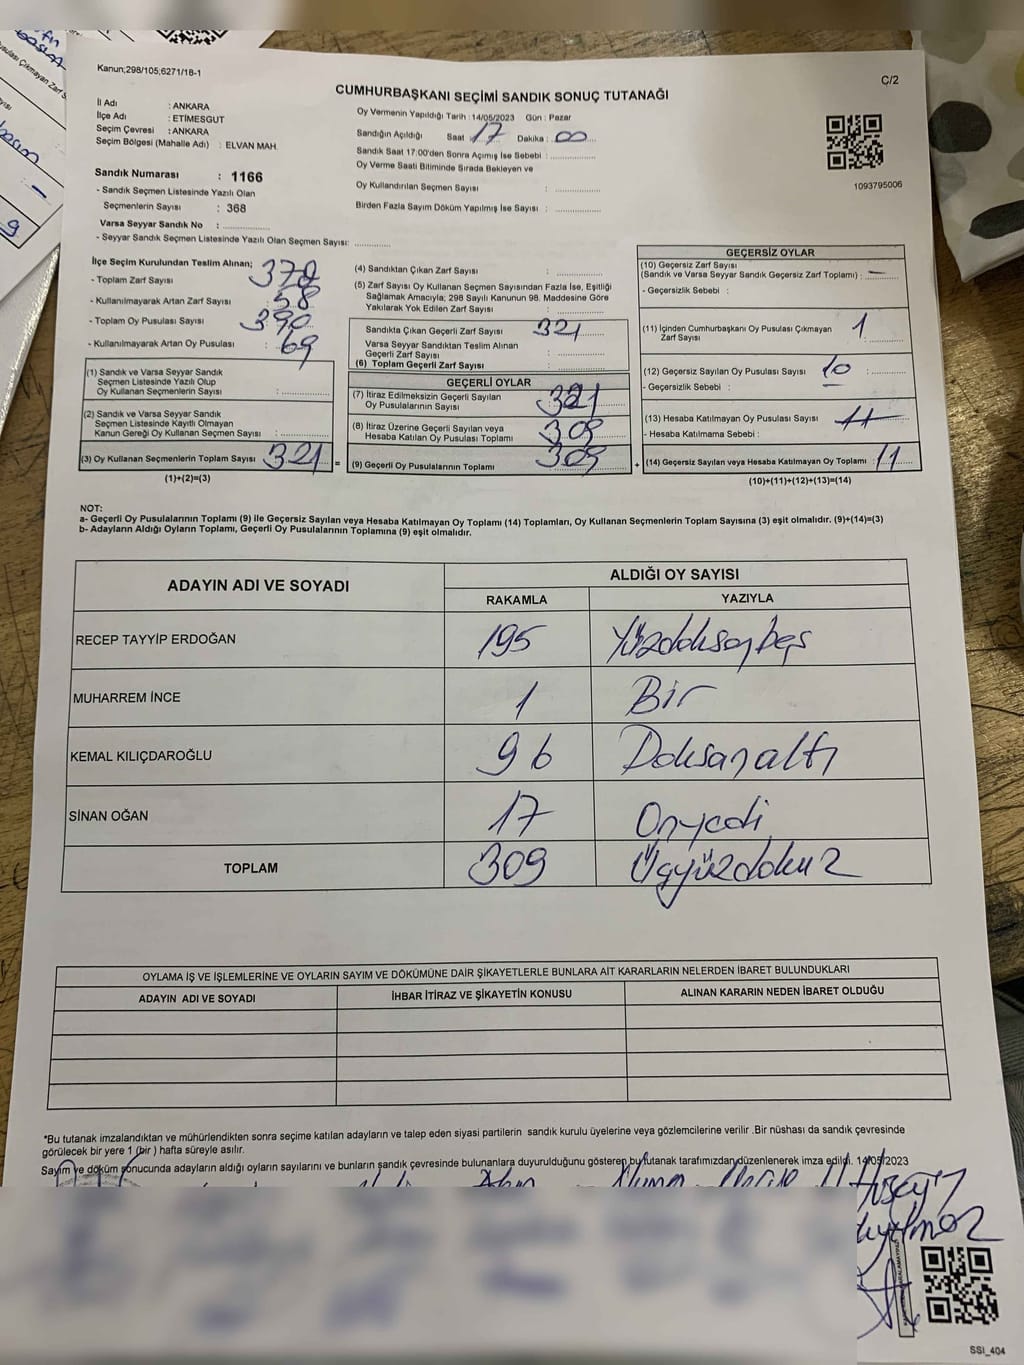 Kanun;298/105;6271/18-1
C/2
CUMHURBAŞKANI SEÇİMİ SANDIK SONUÇ TUTANAĞI
İl Adı : ANKARA
İlçe Adı : ETİMESGUT
Seçim Çevresi : ANKARA
Seçim Bölgesi (Mahalle Adı) : ELVAN MAH.
Oy Vermenin Yapıldığı Tarih :14/05/2023 Gün : Pazar
Sandığın Açıldığı Saat : 17 Dakika : 00
Sandık Saat 17:00'den Sonra Açımış İse Sebebi :
Oy Verme Saati Bitiminde Sırada Bekleyen ve
Oy Kullandırılan Seçmen Sayısı :
Birden Fazla Sayım Döküm Yapılmış İse Sayısı :
1093795006
Sandık Numarası : 1166
- Sandık Seçmen Listesinde Yazılı Olan
Seçmenlerin Sayısı : 368
Varsa Seyyar Sandık No :
- Seyyar Sandık Seçmen Listesinde Yazılı Olan Seçmen Sayısı:
İlçe Seçim Kurulundan Teslim Alınan;
- Toplam Zarf Sayısı
- Kullanılmayarak Artan Zarf Sayısı : 58
- Toplam Oy Pusulası Sayısı : 390
- Kullanılmayarak Artan Oy Pusulası : 69
(1) Sandık ve Varsa Seyyar Sandık
Seçmen Listesinde Yazılı Olup
Oy Kullanan Seçmenlerin Sayısı :
(2) Sandık ve Varsa Seyyar Sandık
Seçmen Listesinde Kayıtlı Olmayan
Kanun Gereği Oy Kullanan Seçmen Sayısı :
(3) Oy Kullanan Seçmenlerin Toplam Sayısı 321 =
(1)+(2)=(3)
(4) Sandıktan Çıkan Zarf Sayısı :
(5) Zarf Sayısı Oy Kullanan Seçmen Sayısından Fazla İse, Eşitliği
Sağlamak Amacıyla; 298 Sayılı Kanunun 98. Maddesine Göre
Yakılarak Yok Edilen Zarf Sayısı :
Sandıkta Çıkan Geçerli Zarf Sayısı 321
Varsa Seyyar Sandıktan Teslim Alınan
Geçerli Zarf Sayısı :
(6) Toplam Geçerli Zarf Sayısı :
GEÇERLİ OYLAR
(7) İtiraz Edilmeksizin Geçerli Sayılan
Oy Pusulalarının Sayısı : 321
(8) İtiraz Üzerine Geçerli Sayılan veya
Hesaba Katılan Oy Pusulası Toplamı : 309
(9) Geçerli Oy Pusulalarının Toplamı 309 +
GEÇERSİZ OYLAR
(10) Geçersiz Zarf Sayısı
(Sandık ve Varsa Seyyar Sandık Geçersiz Zarf Toplamı) : —
- Geçersizlik Sebebi :
(11) İçinden Cumhurbaşkanı Oy Pusulası Çıkmayan
Zarf Sayısı 1
(12) Geçersiz Sayılan Oy Pusulası Sayısı 10 :
- Geçersizlik Sebebi :
(13) Hesaba Katılmayan Oy Pusulası Sayısı 11
- Hesaba Katılmama Sebebi :
(14) Geçersiz Sayılan veya Hesaba Katılmayan Oy Toplamı : 11
(10)+(11)+(12)+(13)=(14)
NOT:
a- Geçerli Oy Pusulalarının Toplamı (9) ile Geçersiz Sayılan veya Hesaba Katılmayan Oy Toplamı (14) Toplamları, Oy Kullanan Seçmenlerin Toplam Sayısına (3) eşit olmalıdır. (9)+(14)=(3)
b- Adayların Aldığı Oyların Toplamı, Geçerli Oy Pusulalarının Toplamına (9) eşit olmalıdır.
ADAYIN ADI VE SOYADI ALDIĞI OY SAYISI
RAKAMLA YAZIYLA
RECEP TAYYİP ERDOĞAN 195 Yüzdoksanbeş
MUHARREM İNCE 1 Bir
KEMAL KILIÇDAROĞLU 96 Doksanaltı
SİNAN OĞAN 17 Onyedi
TOPLAM 309 Üçyüzdokuz
OYLAMA İŞ VE İŞLEMLERİNE VE OYLARIN SAYIM VE DÖKÜMÜNE DAİR ŞİKAYETLERLE BUNLARA AİT KARARLARIN NELERDEN İBARET BULUNDUKLARI
ADAYIN ADI VE SOYADI İHBAR İTİRAZ VE ŞİKAYETİN KONUSU ALINAN KARARIN NEDEN İBARET OLDUĞU
*Bu tutanak imzalandıktan ve mühürlendikten sonra seçime katılan adayların ve talep eden siyasi partilerin sandık kurulu üyelerine veya gözlemcilerine verilir .Bir nüshası da sandık çevresinde
görülecek bir yere 1 (bir ) hafta süreyle asılır.
Sayım ve döküm sonucunda adayların aldığı oyların sayılarını ve bunların sandık çevresinde bulunanlara duyurulduğunu gösteren bu tutanak tarafımızdan düzenlenerek imza edildi. 14/05/2023
SSI_404